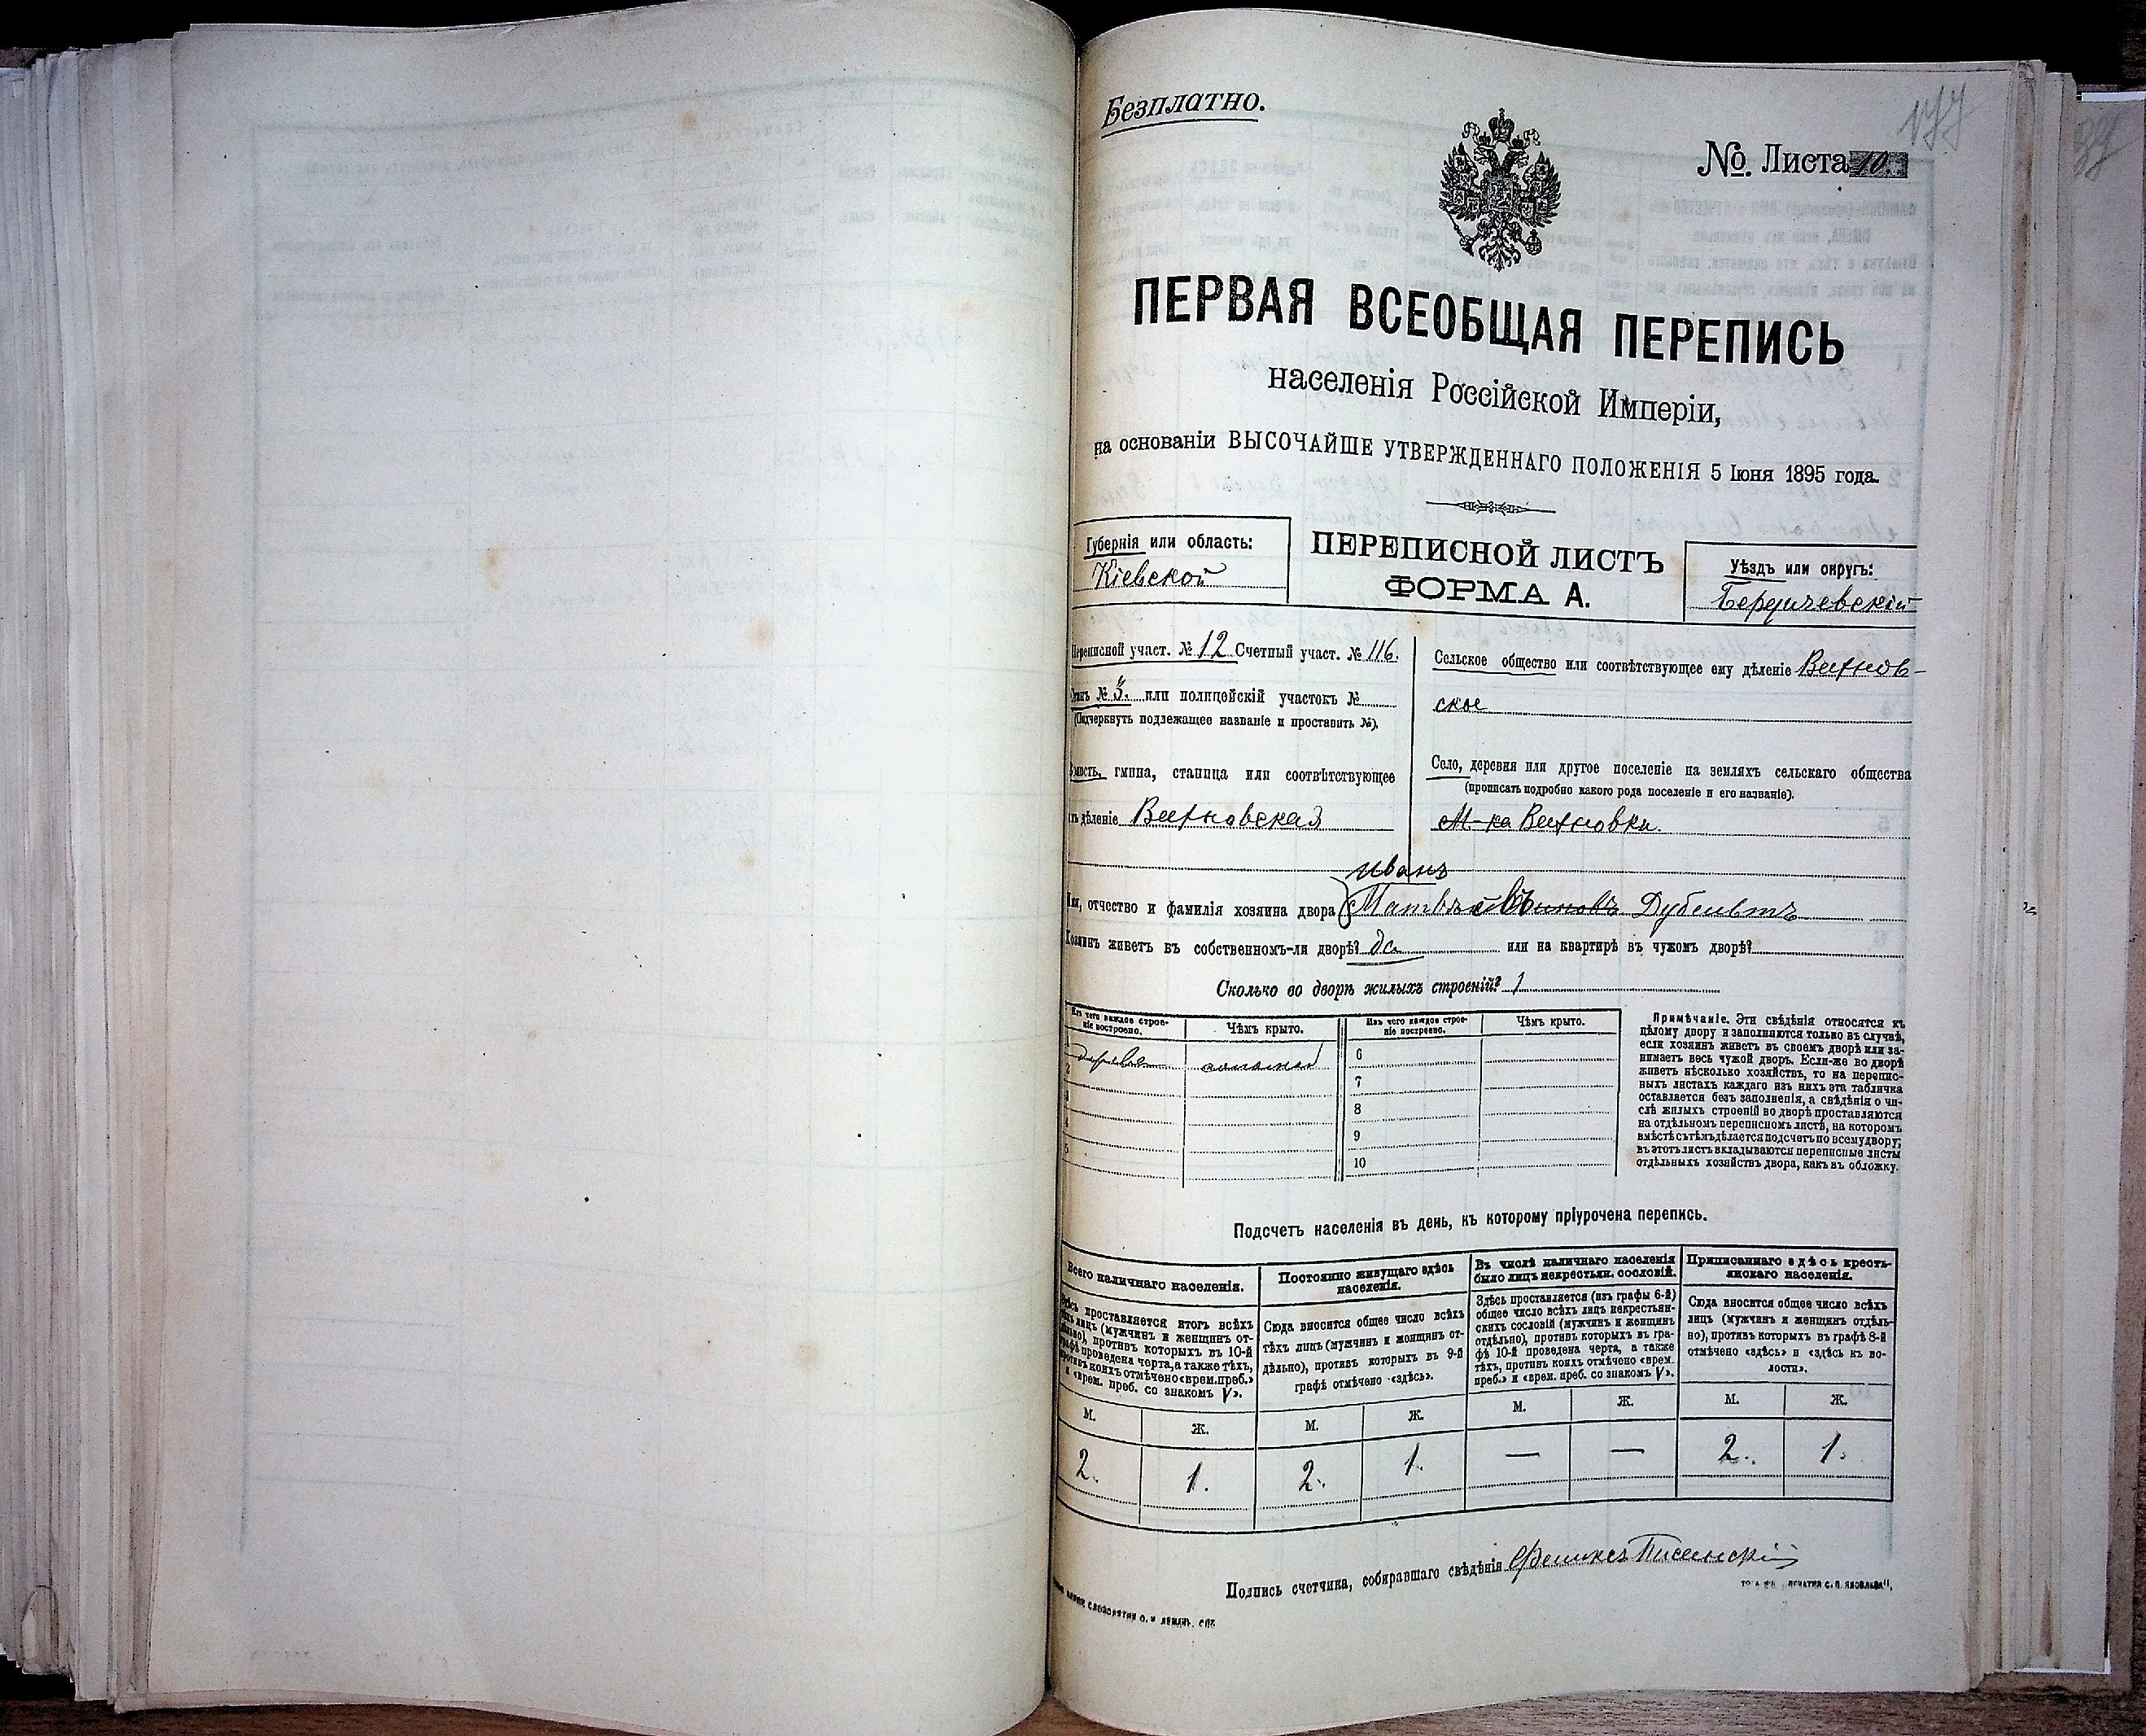 Безплатно.
177
№. Листа 10.
ПЕРВАЯ ВСЕОБЩАЯ ПЕРЕПИСЬ
населенія Россійской Имперіи,
на основаніи ВЫСОЧАЙШЕ УТВЕРЖДЕННАГО ПОЛОЖЕНІЯ 5 Іюня 1895 года.
Губернія или область:
Кіевской
ПЕРЕПИСНОЙ ЛИСТЪ
ФОРМА А.
Уѣздъ или округъ:
Бердичевскій
Переписной участ. № 12 Счетный участ. № 116.
Станъ № 3. или полицейскій участокъ №
(Подчеркнуть подлежащее названіе и проставить №).
Волость, гмина, станица или соотвѣтствующее
имъ дѣленіе Вихновская
Сельское общество или соотвѣтствующее ему дѣленіе Вихнов-
ское
Село, деревня или другое поселеніе на земляхъ сельскаго общества
(прописать подробно какого рода поселеніе и его названіе).
М-ка Вихновки.
Иванъ
Имя, отчество и фамилія хозяина двора Матвѣ Дубельтъ
Хозяинъ живетъ въ собственномъ-ли дворѣ? да или на квартирѣ въ чужомъ дворѣ?
Сколько во дворѣ жилыхъ строеній? 1
Изъ чего каждое строе-
ніе построено.
Чѣмъ крыто.
Изъ чего каждое строе-
ніе построено.
Чѣмъ крыто.
дерева соломой 6
2 7
3 8
4 9
5 10
Примѣчаніе. Эти свѣдѣнія относятся къ
цѣлому двору и заполняются только въ случаѣ,
если хозяинъ живетъ въ своемъ дворѣ или за-
нимаетъ весь чужой дворъ. Если-же во дворѣ
живетъ нѣсколько хозяйствъ, то на перепис-
ныхъ листахъ каждаго изъ нихъ эта табличка
оставляется безъ заполненія, а свѣдѣнія о чи-
слѣ жилыхъ строеній во дворѣ проставляются
на отдѣльномъ переписномъ листѣ, на которомъ
вмѣстѣ съ тѣмъ дѣлается подсчетъ по всему двору;
въ этотъ листъ вкладываются переписные листы
отдѣльныхъ хозяйствъ двора, какъ въ обложку.
Подсчетъ населенія въ день, къ которому пріурочена перепись.
Всего наличнаго населенія.
Здѣсь проставляется итогъ всѣхъ
тѣхъ лицъ (мужчинъ и женщинъ от-
дѣльно), противъ которыхъ въ 10-й
графѣ проведена черта, а также тѣхъ,
противъ коихъ отмѣчено «врем. преб.»
и «врем. преб. со знакомъ V».
Постоянно живущаго здѣсь
населенія.
Сюда вносится общее число всѣхъ
тѣхъ лицъ (мужчинъ и женщинъ от-
дѣльно), противъ которыхъ въ 9-й
графѣ отмѣчено «здѣсь».
Въ числѣ наличнаго населенія
было лицъ некрестьян. сословій.
Здѣсь проставляется (изъ графы 6-й)
общее число всѣхъ лицъ некрестьян-
скихъ сословій (мужчинъ и женщинъ
отдѣльно), противъ которыхъ въ гра-
фѣ 10-й проведена черта, а также
тѣхъ, противъ коихъ отмѣчено «врем.
преб.» и «врем. преб. со знакомъ V».
Приписаннаго здѣсь кресть-
янскаго населенія.
Сюда вносится общее число всѣхъ
лицъ (мужчинъ и женщинъ отдѣль-
но), противъ которыхъ въ графѣ 8-й
отмѣчено «здѣсь» и «здѣсь къ во-
лости».
М. Ж. М. Ж. М. Ж. М. Ж.
2. 1. 2. 1. — — 2. 1.
Подпись счетчика, собиравшаго свѣдѣнія Феликсъ